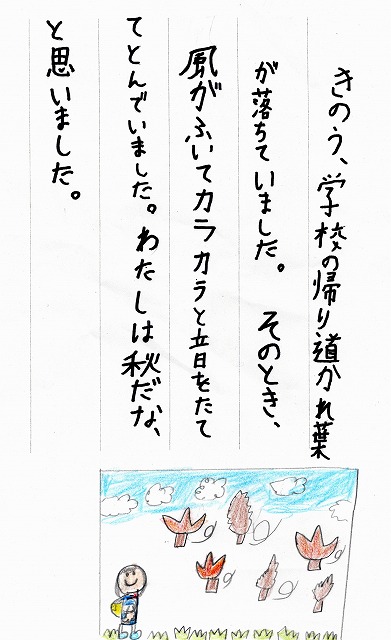 きのう、学校の帰り道かれ葉
が落ちていました。そのとき、
風がふいてカラカラと音をたて
てとんでいました。わたしは秋だな、
と思いました。